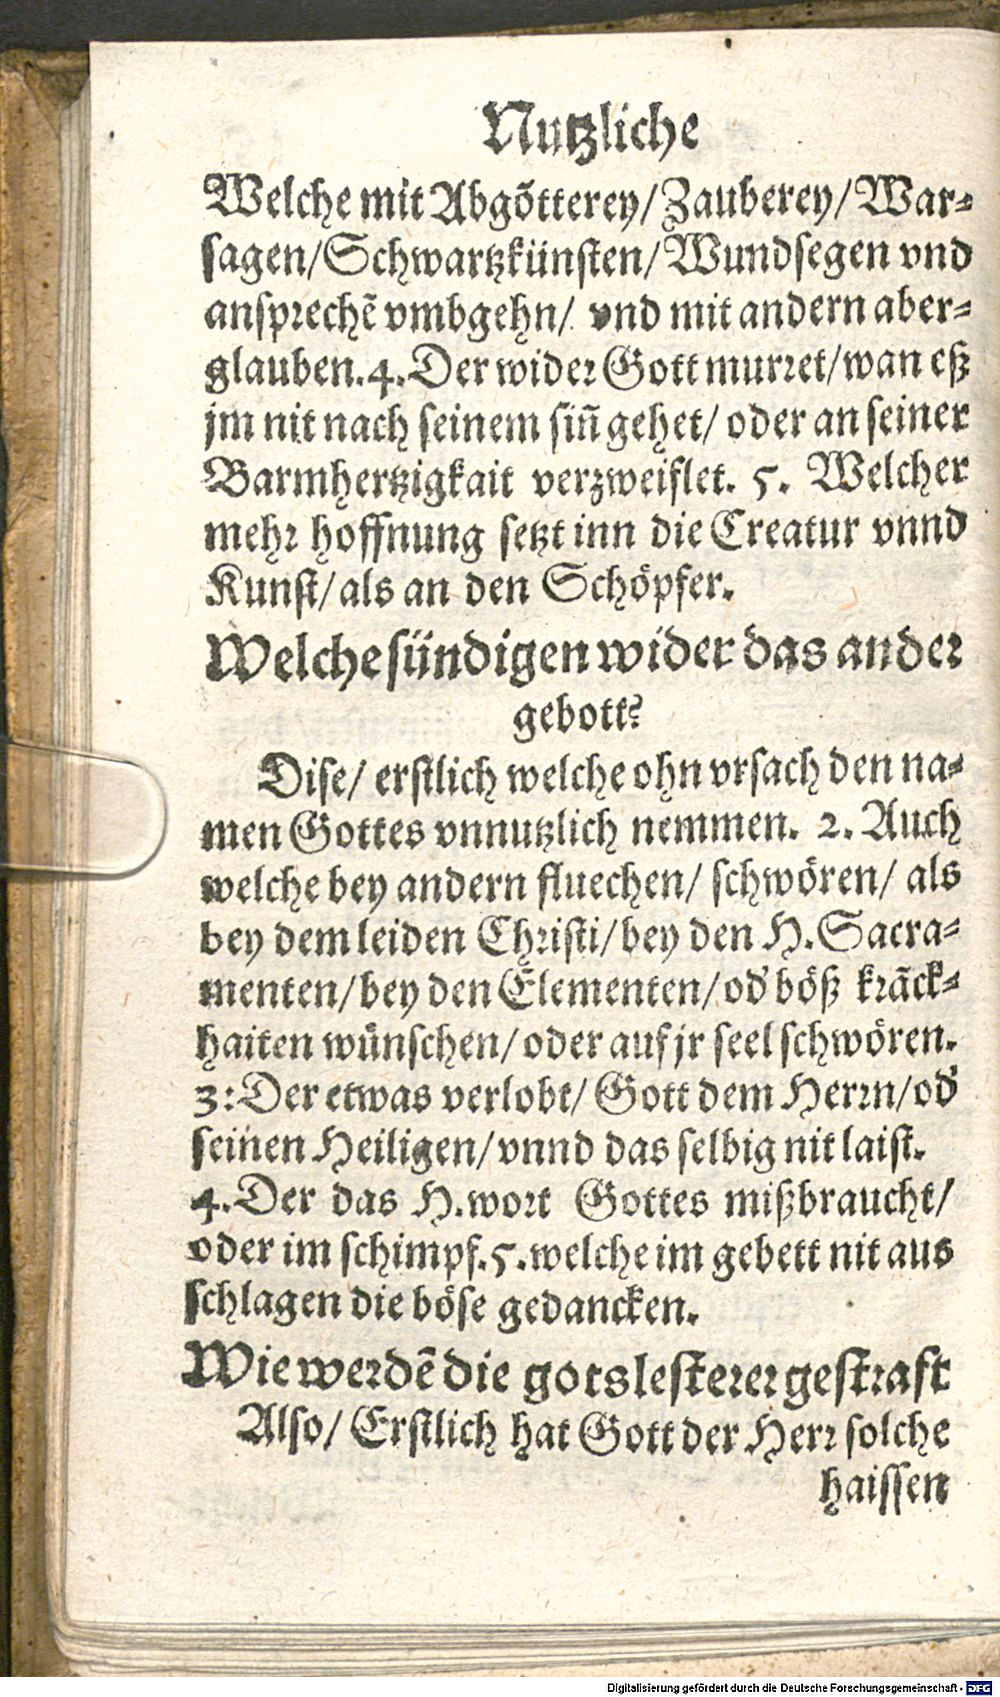 Nutzliche
Welche mit Abgötterey/ Zauberey/ War⸗
sagen/ Schwartzkünsten/ Wundsegen vnd
ansprechẽ vmbgehn/ vnd mit andern aber⸗
glauben. 4. Der wider Gott murret/ wan eß
jm nit nach seinem siñ gehet/ oder an seiner
Barmhertzigkait verzweiflet. 5. Welcher
mehr hoffnung setzt inn die Creatur vnnd
Kunst/ als an den Schöpfer.
Welche sündigen wider das ander
gebott?
Dise/ erstlich welche ohn vrsach den na⸗
men Gottes vnnutzlich nemmen. 2. Auch
welche bey andern fluechen/ schwören/ als
bey dem leiden Christi/ bey den H. Sacra⸗
menten/ bey den Elementen/ od' böß krãck⸗
haiten wünschen/ oder auf jr seel schwören.
3: Der etwas verlobt/ Gott dem Herrn/ od'
seinen Heiligen/ vnnd das selbig nit laist.
4. Der das H. wort Gottes mißbraucht/
oder im schimpf. 5. welche im gebett nit aus
schlagen die böse gedancken.
Wie werdẽ die gotslesterer gestraft
Also/ Erstlich hat Gott der Herr solche
haissen
Digitalisierung gefördert durch die Deutsche Forschungsgemeinschaft - DFG